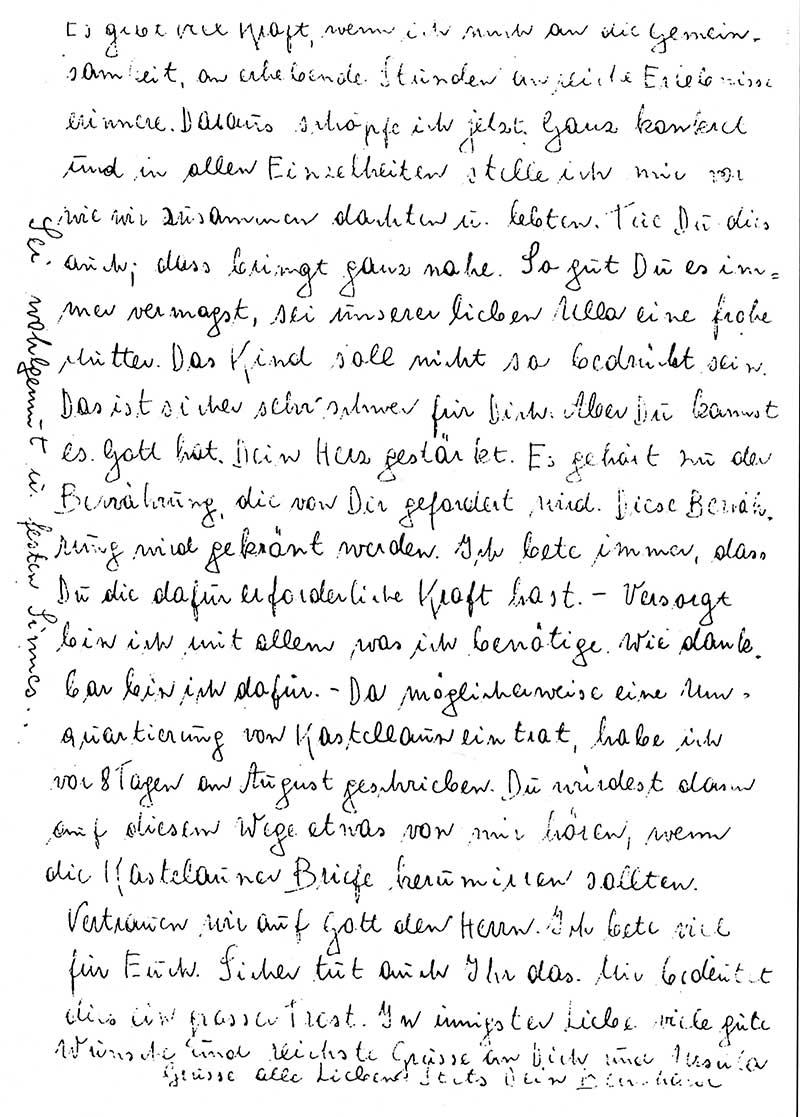 Es gibt viel Kraft, wenn ich mich an die Gemein-
samkeit, an erhebende Stunden an reiche Erlebnisse
erinnere. Daraus schöpfe ich jetzt. Ganz konkret
und in allen Einzelheiten stelle ich mir vor
wie wir zusammen dachten u. lebten. Tue Du dies
auch; dass bringt ganz nahe. So gut Du es im=
mer vermagst, sei unserer lieben Ulla eine frohe
Mutter. Das Kind soll nicht so bedrückt sein.
Das ist sicher sehr schwer für Dich. Aber Du kannst
es. Gott hat Dein Herz gestärkt. Es gehört zu der
Bewährung, die von Dir gefordert wird. Diese Bewäh-
rung wird gekrönt werden. Ich bete immer, dass
Du die dafür erforderliche Kraft hast. – Versorgt
bin ich mit allem was ich benötige. Wie dank-
bar bin ich dafür. – Da möglicherweise eine Um-
quartierung von Kastellaun eintrat, habe ich
vor 8 Tagen an August geschrieben. Du würdest dann
auf diesem Wege etwas von mir hören, wenn
die Kastelauner Briefe herumirren sollten.
Vertrauen wir auf Gott den Herrn. Ich bete viel
für Euch. Sicher tut auch Ihr das. Mir bedeutet
dies ein grosser Trost. In innigster Liebe viele gute
Wünsche und reichste Grüsse an Dich und Ursula
Grüsse alle Lieben Stets Dein
Sei wohlgemut u. festen Sinnes.